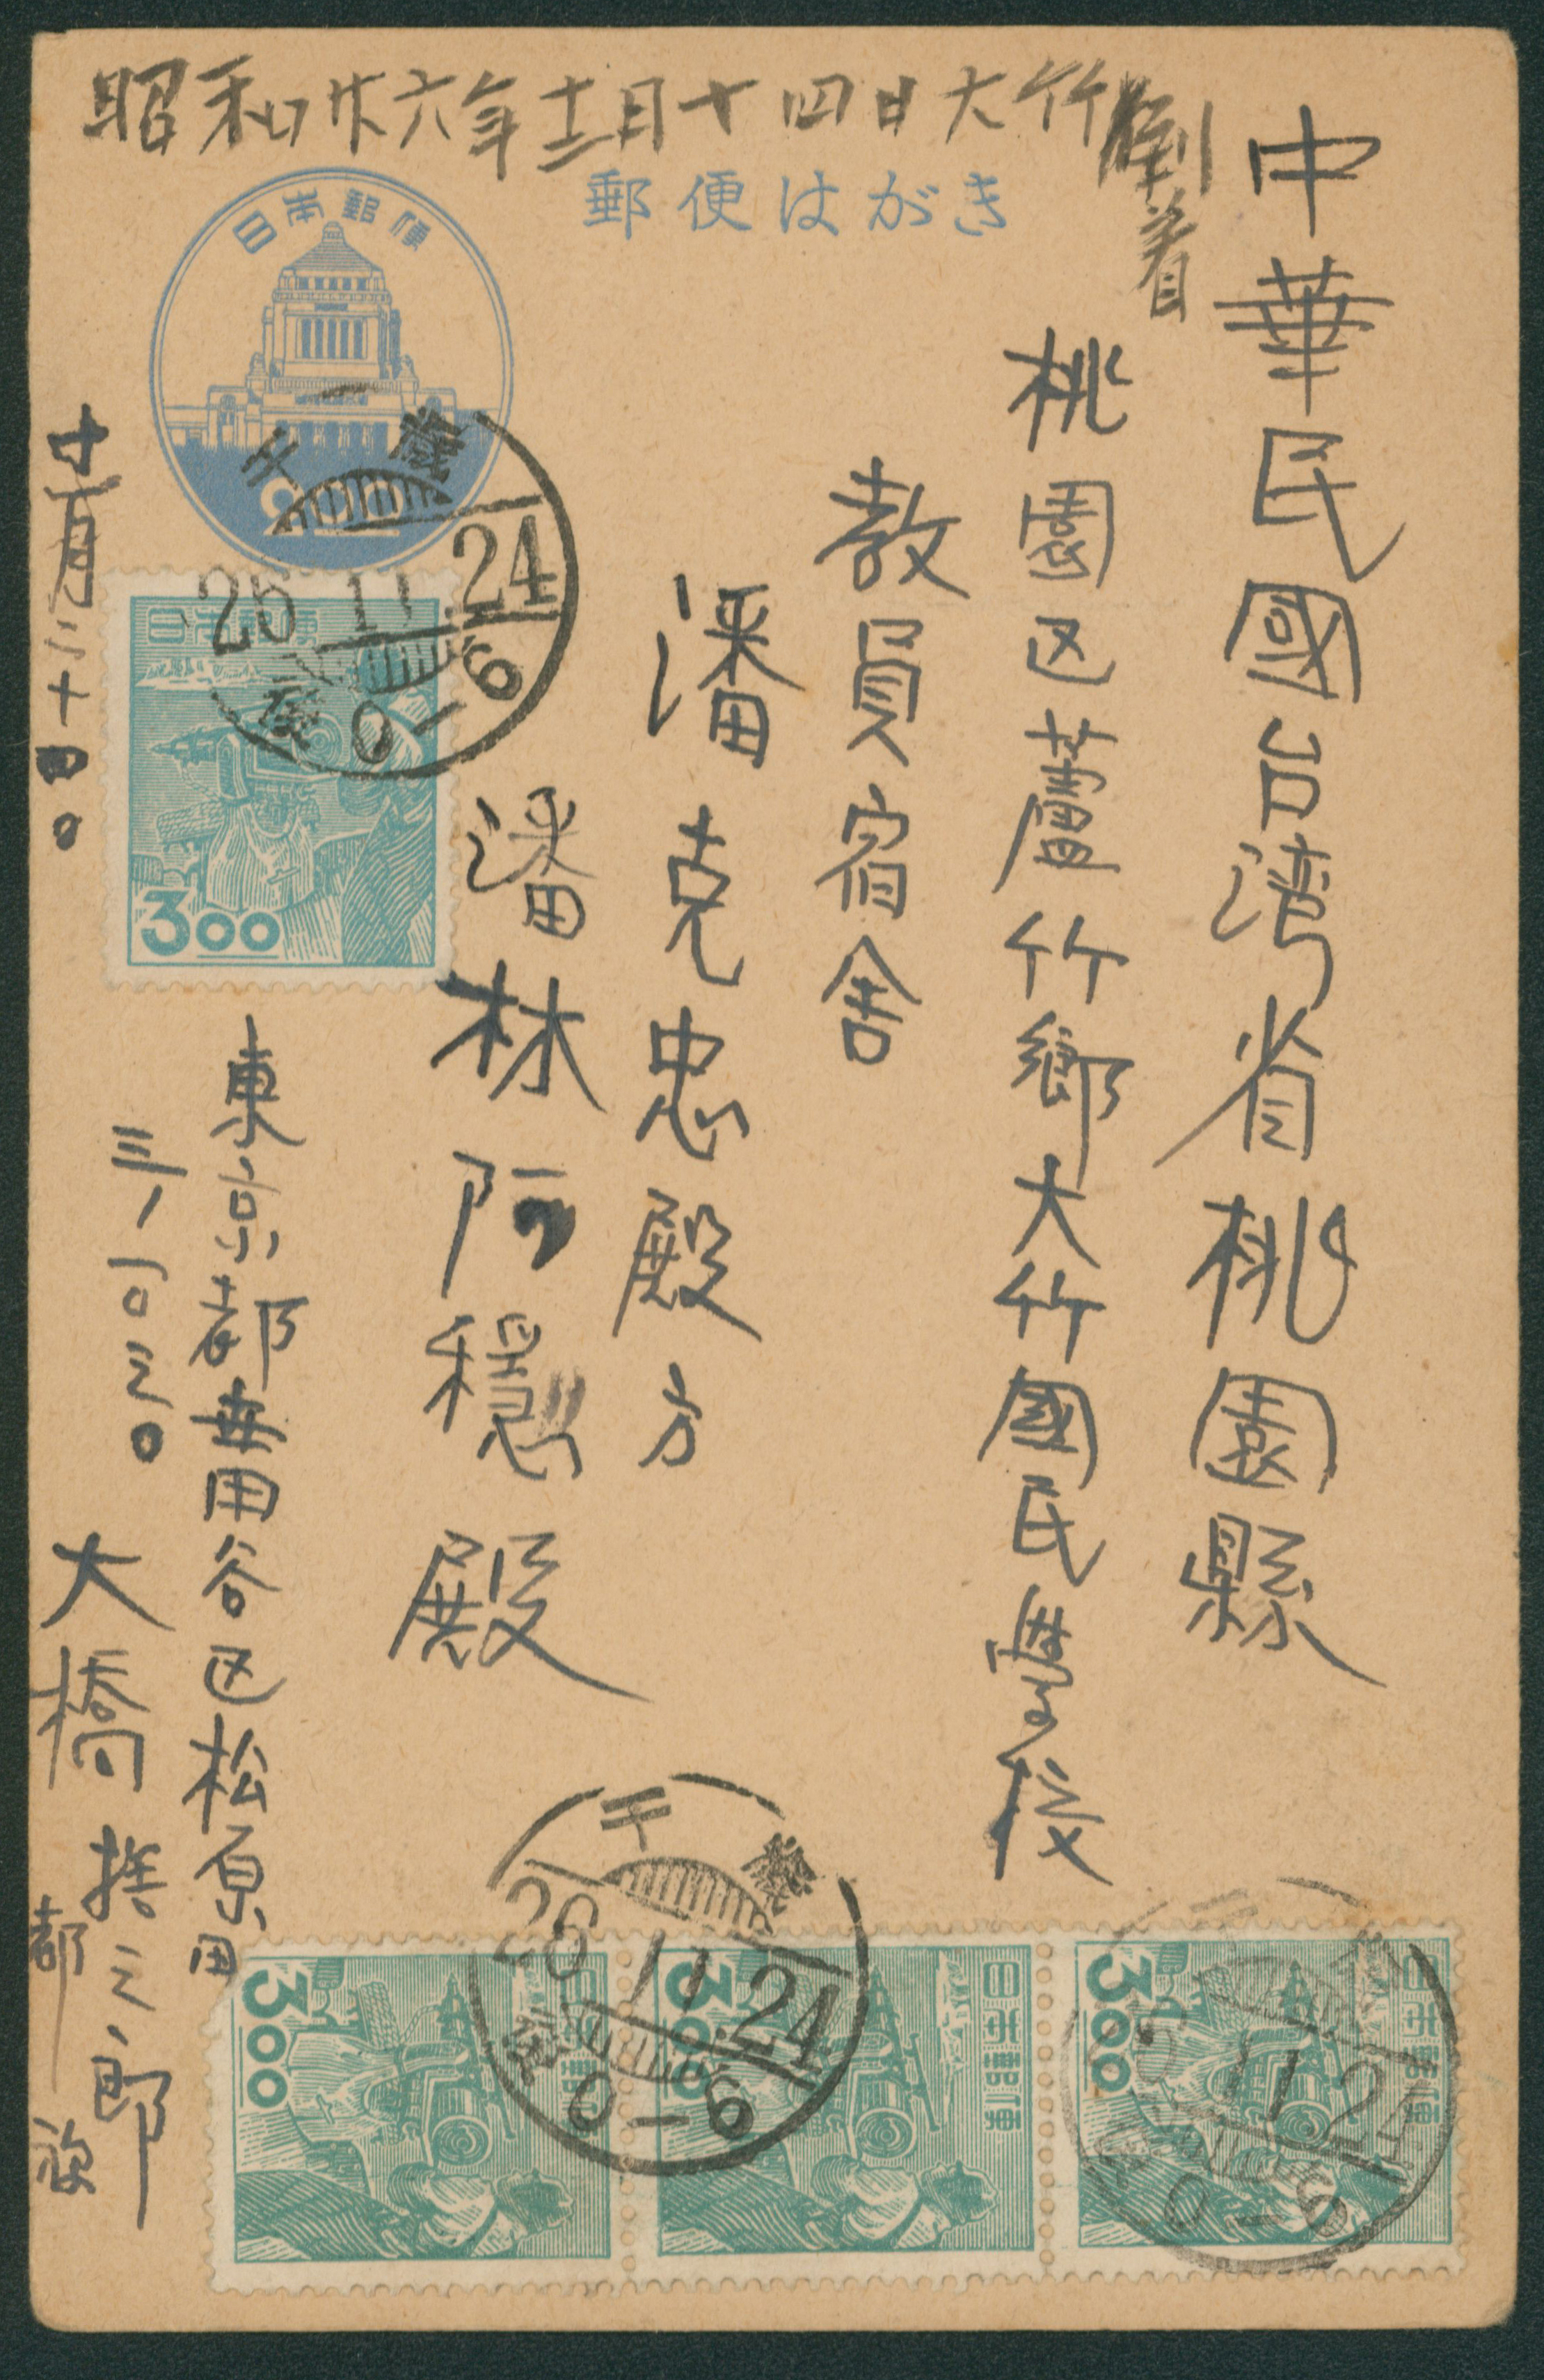 昭和廿六年十二月十四日大竹到着
郵便はがき
日本郵便
中華民國台湾省桃園縣
桃園区蘆竹鄉大竹國民學校
教員宿舍
潘克忠殿方
潘林阿穏殿
十一月二十四日
東京都世田谷区松原町
三ノ一〇三〇
大橋捨三郎
千歳
26.11.24
0-6
日本郵便
3.00
千歳
26.11.24
0-6
3.00
日本郵便
3.00
日本郵便
3.00
日本郵便
11.24
0-6